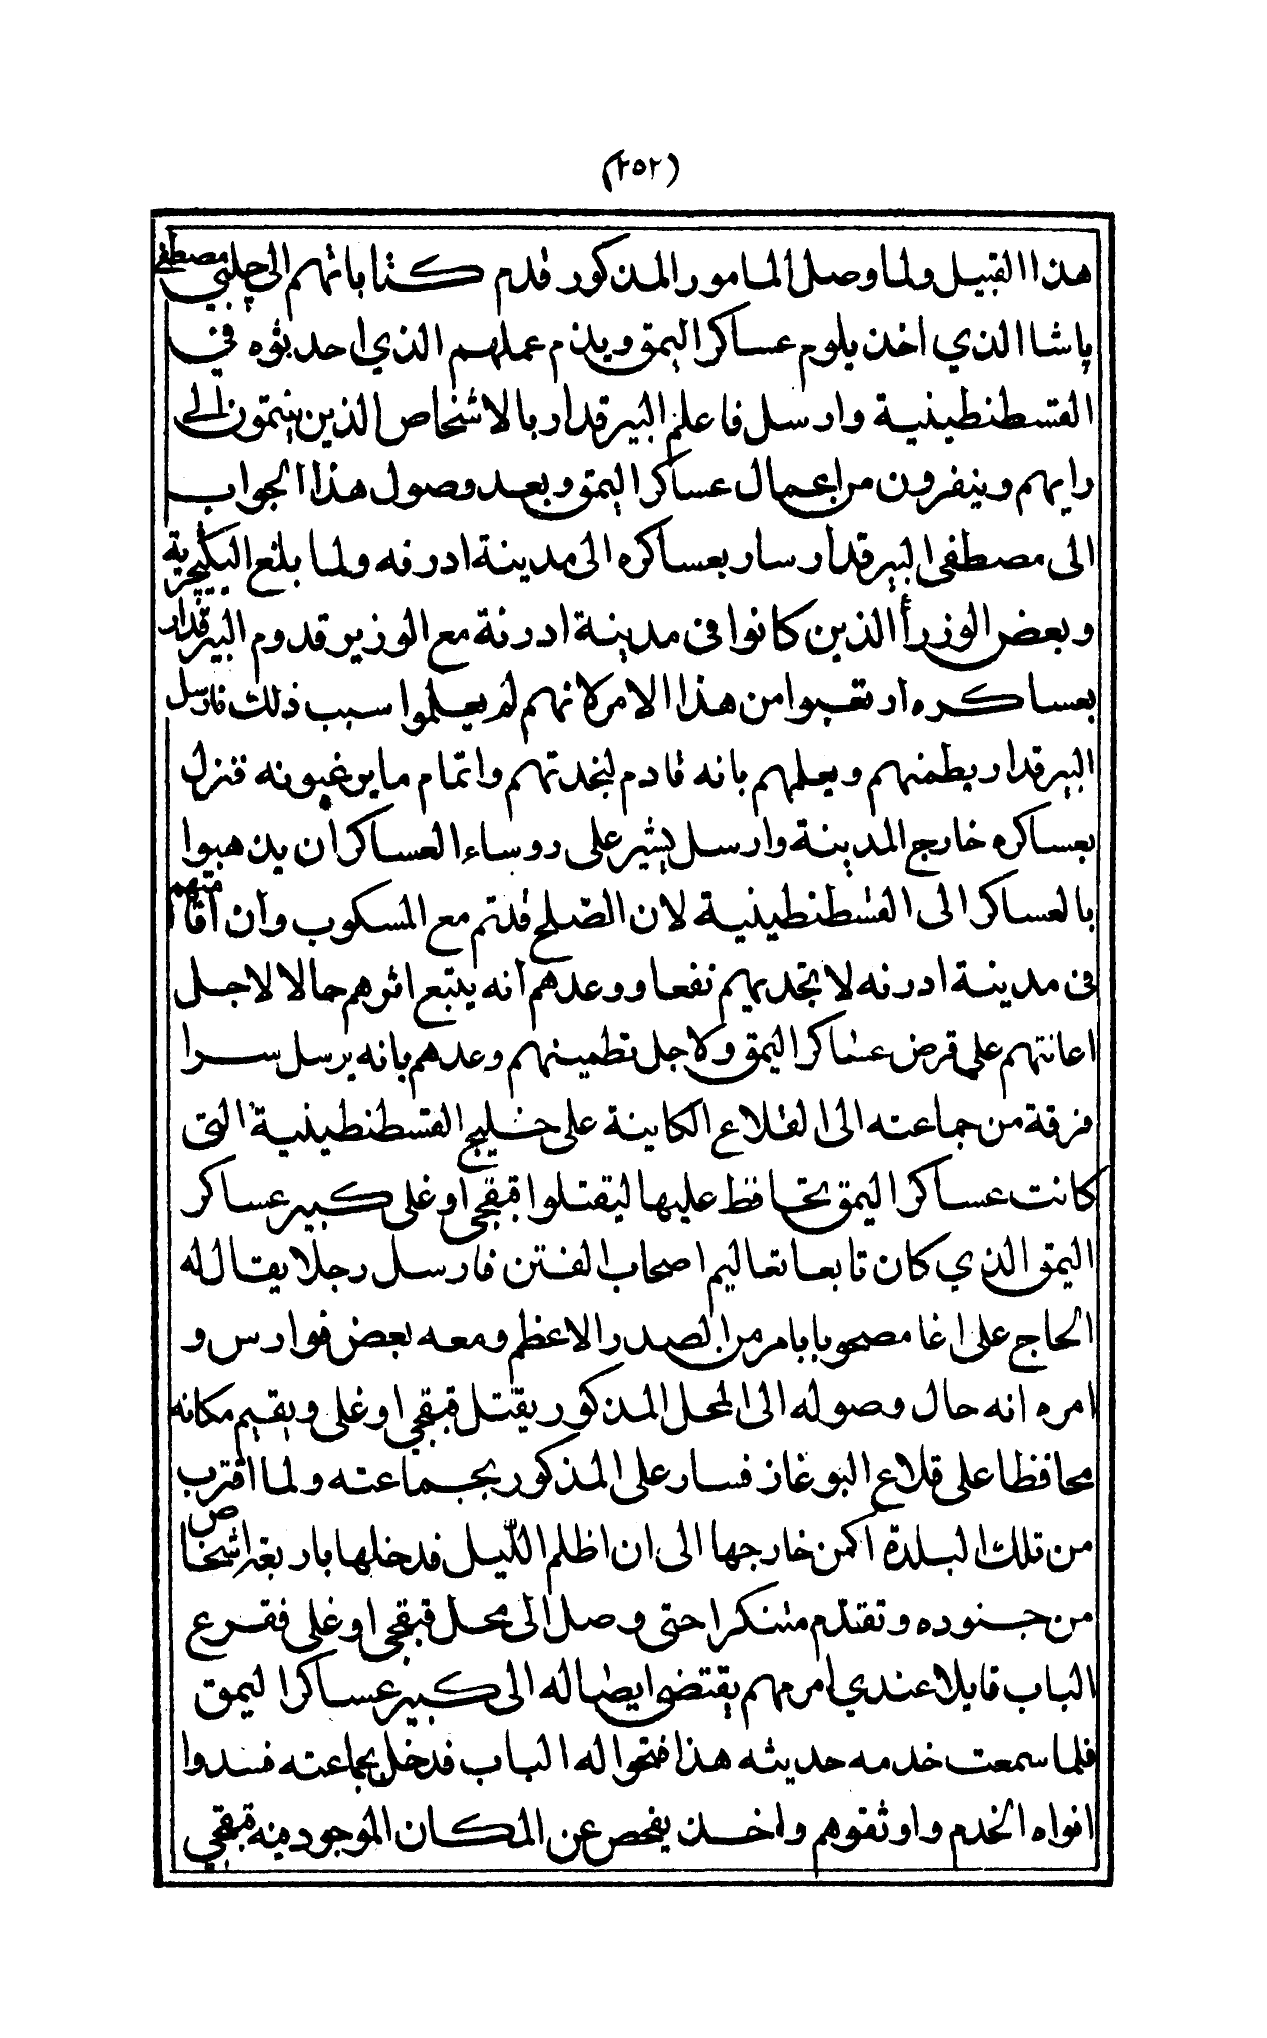 (٢٥٢)
هذا القبيل ولما وصل المامور المذكور قدم كتاباتهم الى چلبي مصطفى
پاشا الذي اخذ يلوم عساكر اليمق ويذم عملهم الذي احدثوه في
القسطنطينية وارسل فاعلم البيرقدار بالاشخاص الذين ينتمون الى
رايهم وينفرون من اعمال عساكر اليمق وبعد وصول هذا الجواب
الى مصطفى البيرقدار سار بعساكره الى مدينة ادرنه ولما بلغ اليكيچرية
وبعض الوزرأ الذين كانوا في مدينة ادرنة مع الوزير قدوم البيرقدار
بعساكره ارتعبوا من هذا الامر لانهم لم يعلموا سبب ذلك فارسل
البيرقدار يطمنهم ويعلمهم بانه قادم لنجدتهم واتمام ما يرغبونه فنزل
بعساكره خارج المدينة وارسل يشير على روساء العساكر أن يذهبوا
بالعساكر الى القسطنطينية لان الصّلح قد تم مع المسكوب وأن اقامتهم
في مدينة ادرنه لا تجديهم نفعا ووعدهم أنه يتبع اثرهم حالا لاجل
اعانتهم على قرض عساكر اليمق ولاجل تطمينهم وعدهم بانه يرسل سرا
فرقة من جماعته الى القلاع الكاينة على خليج القسطنطينية التى
كانت عساكر اليمق تحافظ عليها ليقتلوا قبقجي اوغلى كبير عساكر
اليمق الذي كان تابعا تعاليم اصحاب الفتن فارسل رجلا يقال له
الحاج على اغا مصحوبا بامر من الصدر الاعظم ومعه بعض فوارس و
امره انه حال وصوله الى المحل المذكور يقتل قبقجي اوغلى ويقيم مكانه
محافظا على قلاع البوغاز فسار على المذكور بجماعته ولما اقترب
من تلك البلدة اكمن خارجها الى ان اظلم اللّيل فدخلها باربعة اشخاص
من جنوده وتقدّم متنكرا حتى وصل الى محل قبقجي اوغلى فقرع
الباب قايلا عندي امر مهم يقتضى ايصاله الى كبير عساكر اليمق
فلما سمعت خدمه حديثه هذا فتحوا له الباب فدخل بجماعته فسدوا
افواه الخدم واوثقوهم واخذ يفحص عن المكان الموجود فيه قبقجي